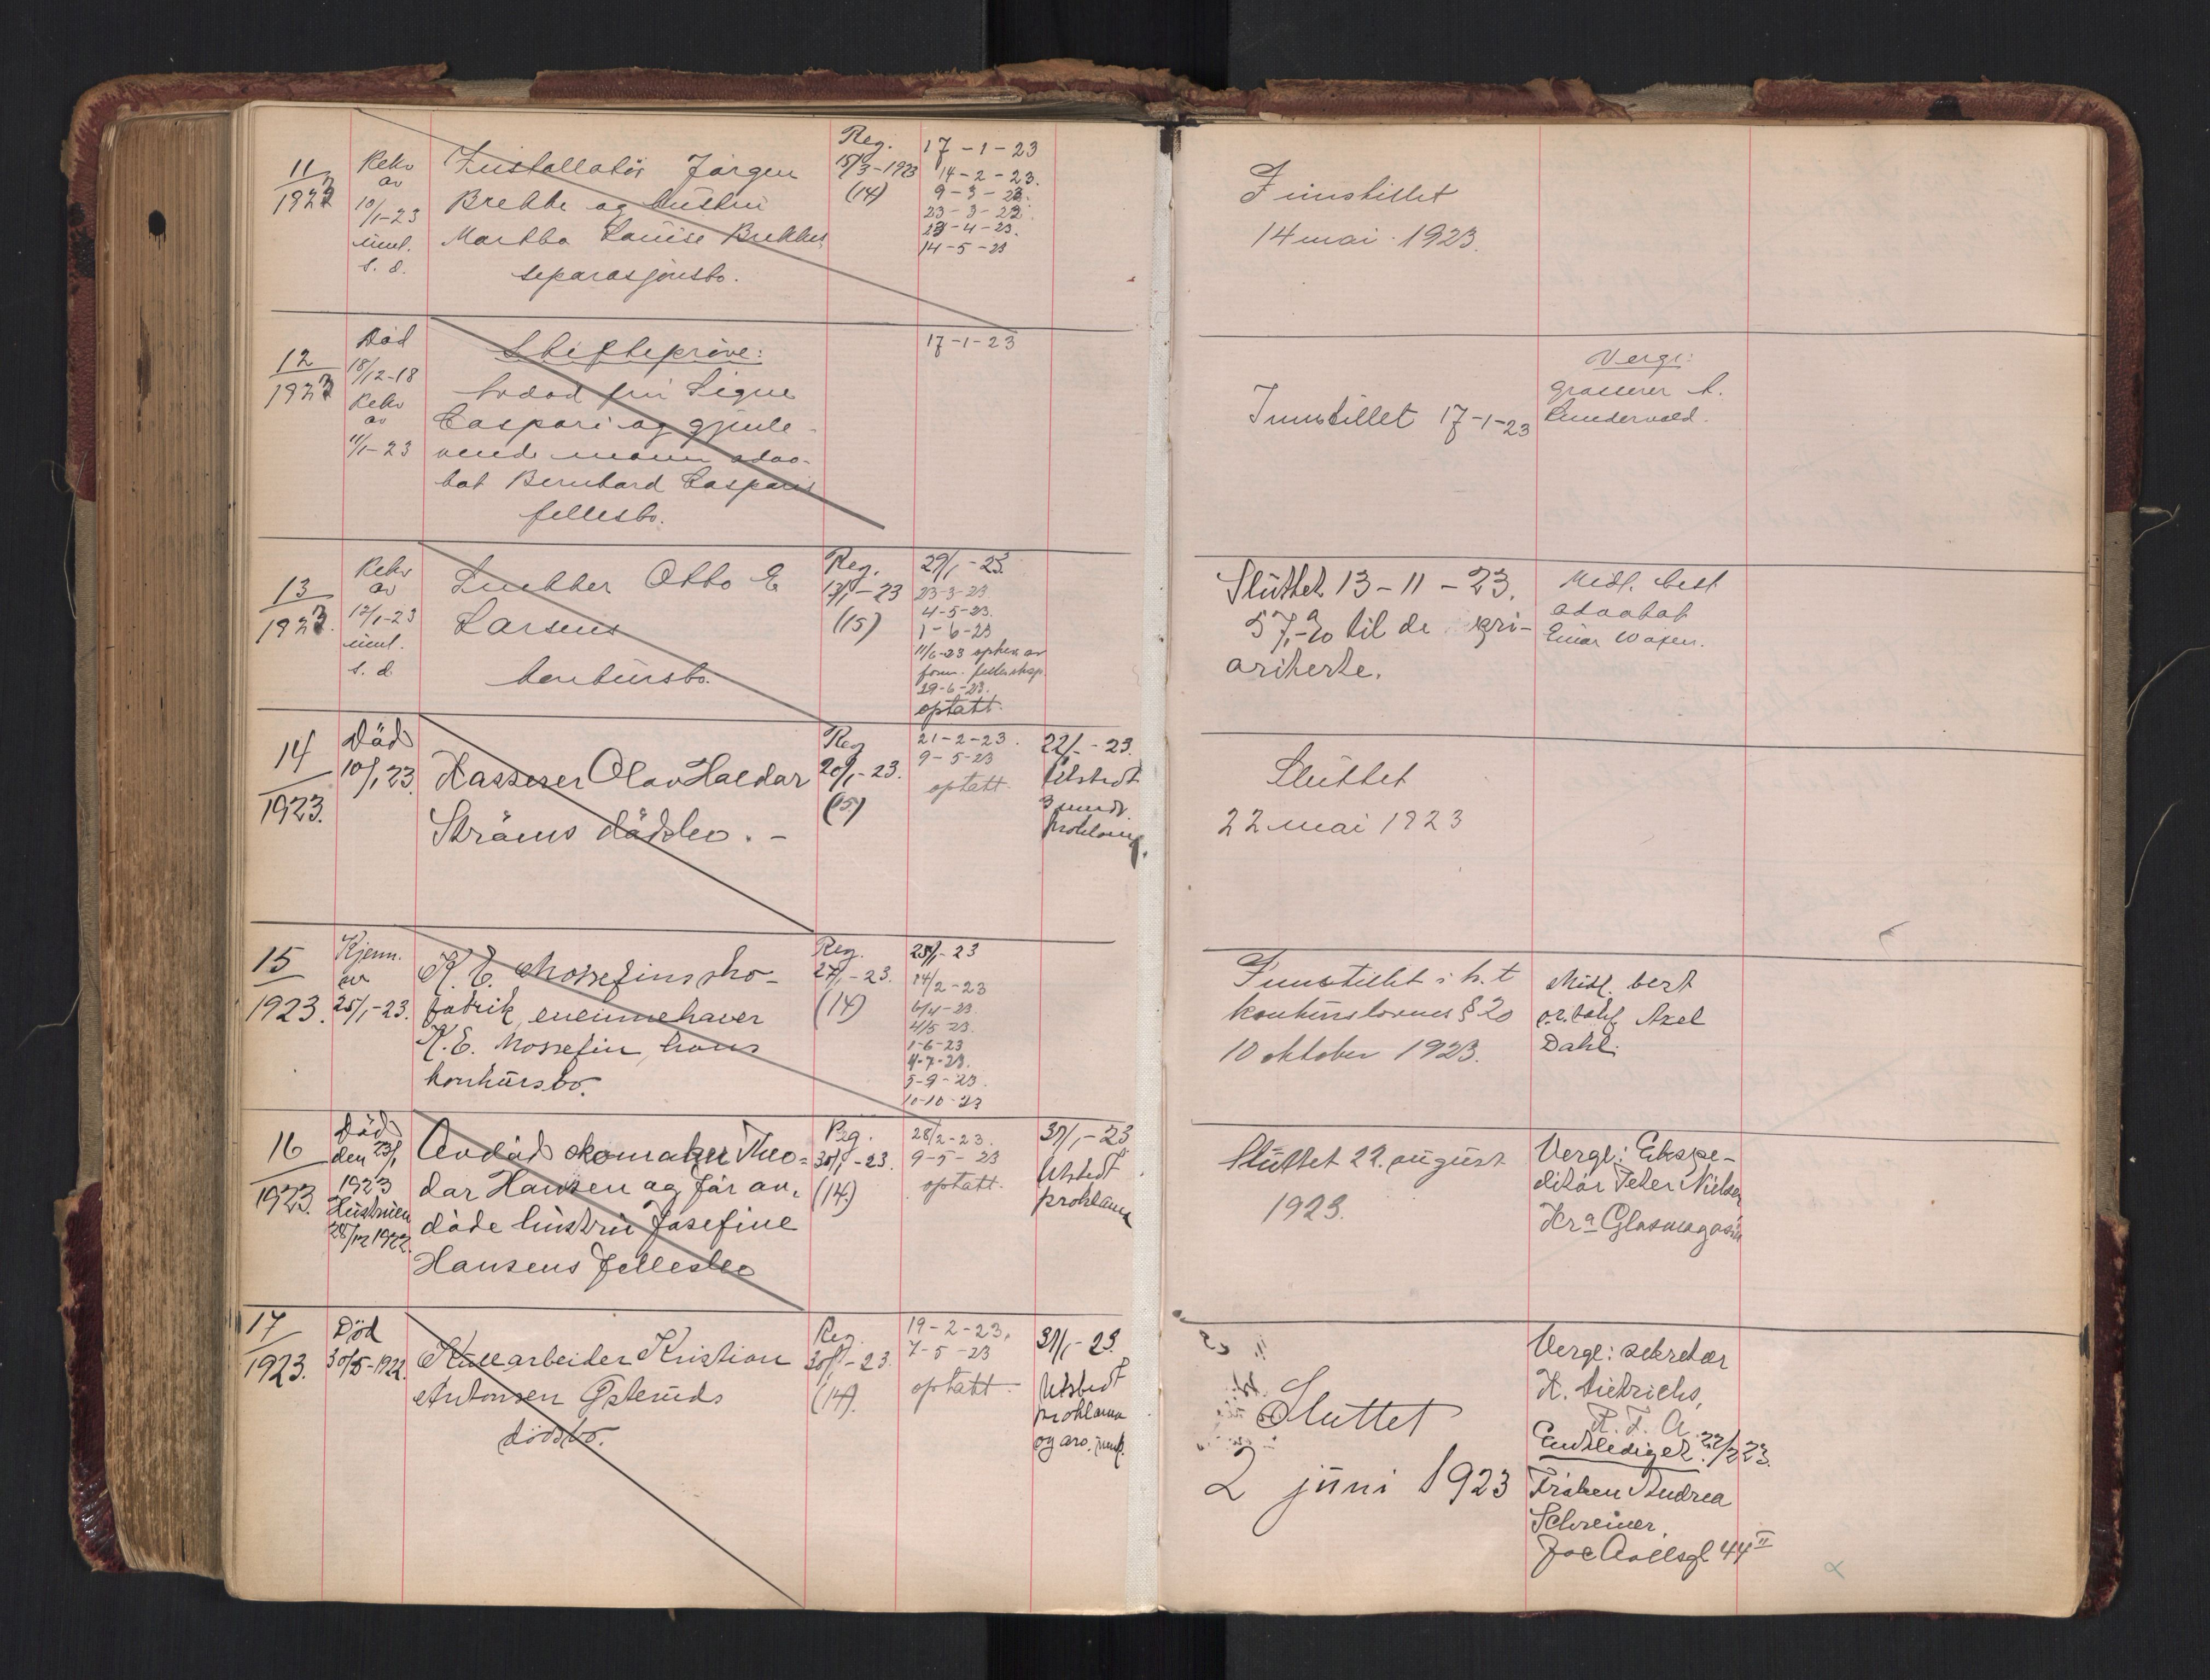 11
1923
Rekv
av
10/1-23
innl.
s. d.
Installatör Jörgen
Brekke og hustru
Martha Louise Brekkes
separasjonsbo.
Reg.
15/3-1923
(14)
17-1-23
14-2-23.
9-3-23.
23-3-23.
23-4-23.
14-5-23
Innstillet
14 mai 1923.
12
1923
Död
18/12-18
Rekv
av
11/1-23
Skiftepröve:
avdöd fru Signe
Caspari og gjenle-
vende mann advo-
kat Bernhard Casparis
fellesbo.
17-1-23
Innstillet 17-1-23
Verge:
grosserer
13
1923.
Rekv
av
12/1-23
innl.
s. d.
Snekker Otto E
Larsens
konkursbo.
Reg.
13/1-23
(15)
29/1-23.
23-3-23
4-5-23.
1-6-23
11/6-23 ophev av
form. fellesskap.
29-6-23.
optatt.
Sluttet 13-11-23.
57,20 til de pri-
oriterte.
Midl. best
advokat
Einar
14
1923.
Död
10/1 23.
Kasserer Olav Haldar
Ströms dödsbo. -
Reg
20/1-23.
(15)
21-2-23.
9-5-23
optatt.
22/1-23.
Utstedt
3 mndr.
proklama.
Sluttet
22 mai 1923
15
1923.
Kjenn.
av
25/1-23.
K. E. Mossefins sko-
fabrik, eneinnehaver
K. E. Mossefin, hans
konkursbo.
Reg.
27/1-23.
(14)
25/1-23
14/2-23
4/4-23
4/5-23.
1-6-23
4-7-23.
5-9-23.
10-10-23
Innstillet i h. t
konkurslovens § 20
10 oktober 1923.
Midl. best
o.r.sakf. Axel
Dahl.
16
1923.
Död
den 23/1
1923
Hustruen
28/12 1922.
Avdöd skomaker Theo-
dor Hansen og för av-
döde hustru Josefine
Hansens fellesbo
Reg.
30/1-23.
(14.)
28/2-23.
9-5-23
optatt.
31/1-23
Utstedt
proklama
Sluttet 22. august
1923.
Verge: Ekspe-
ditör Peter Nielsen
Kra Glasmagasin
17
1923.
Död
30/5-1922.
Kullarbeider Kristian
Antonsen Österuds
dödsbo.
Reg.
30/1-23.
(14).
19-2-23.
7-5-23
optatt.
31/1-23.
Utstedt
proklama
og arv. innk.
Sluttet
2 juni 1923
Verge: sekretær
H. Dietrichs,
K. F. A.
Entlediget 22/2 23.
Fröken Andrea
Schreiner,
Jac Aallsgt. 44 II